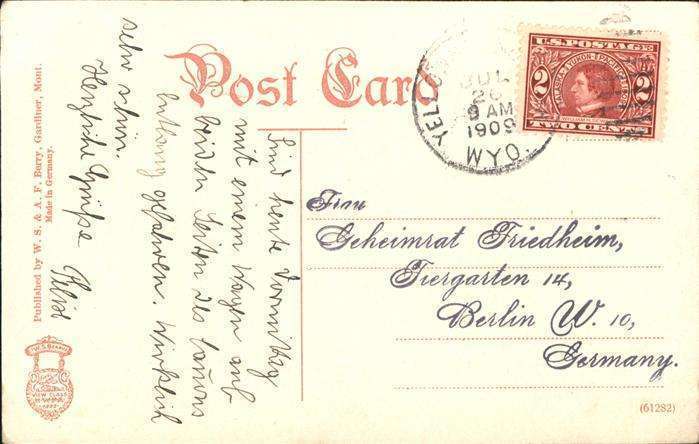 Post Card
YEL
JUL
26
9 AM
1909
WYO.
U.S. POSTAGE
ALASKA-YUKON-PACIFIC
1909
2 2
TWO CENTS
Sind heute Vormittag
mit einem Wagen auf
beiden Seiten des Canons
entlang gefahren. Wirklich
sehr schön.
Herzliche Grüße
Frau
Geheimrat Friedheim,
Tiergarten 14,
Berlin W. 10,
Germany.
Published by W. S. & A. F. Berry, Gardiner, Mont.
Made in Germany.
W.S. BERRY
VIEW CLASS
(61282)